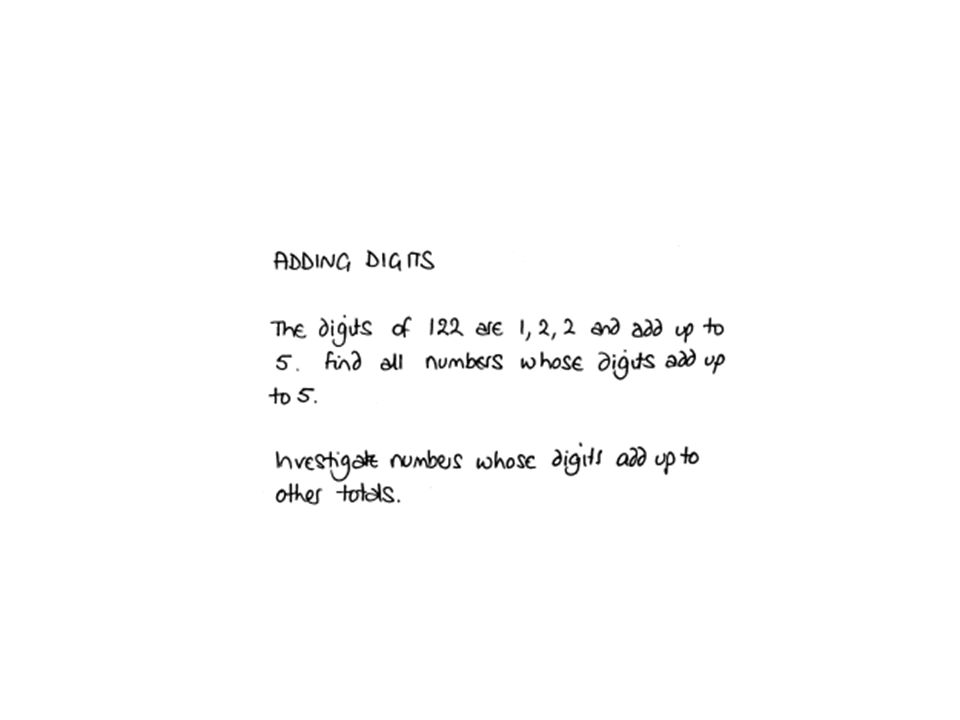 ADDING DIGITS
The digits of 122 are 1, 2, 2 and add up to
5. Find all numbers whose digits add up
to 5.
Investigate numbers whose digits add up to
other totals.